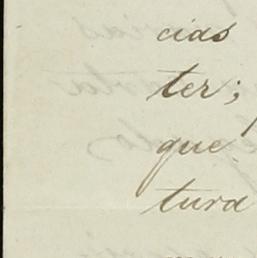 cias
ter;
que
tura